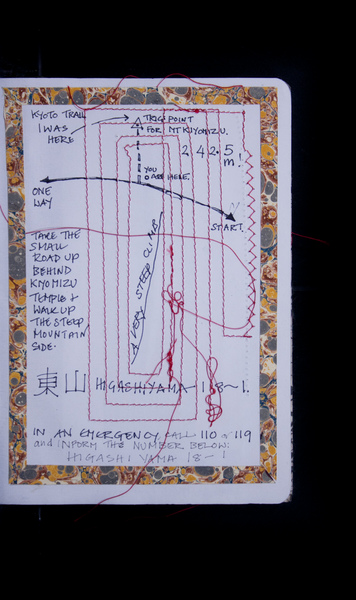 KYOTO TRAIL
I WAS
HERE
TRIG. POINT
FOR MT KIYOMIZU.
242.5
m!
YOU
ARE HERE.
ONE
WAY
N
START.
TAKE THE
SMALL
ROAD UP
BEHIND
KIYOMIZU
TEMPLE &
WALK UP
THE STEEP
MOUNTAIN
SIDE.
A VERY STEEP CLIMB
東山 HIGASHIYAMA - 18~1.
IN AN EMERGENCY CALL 110 or 119
and INFORM THE NUMBER BELOW.
HIGASHI YAMA 18-1